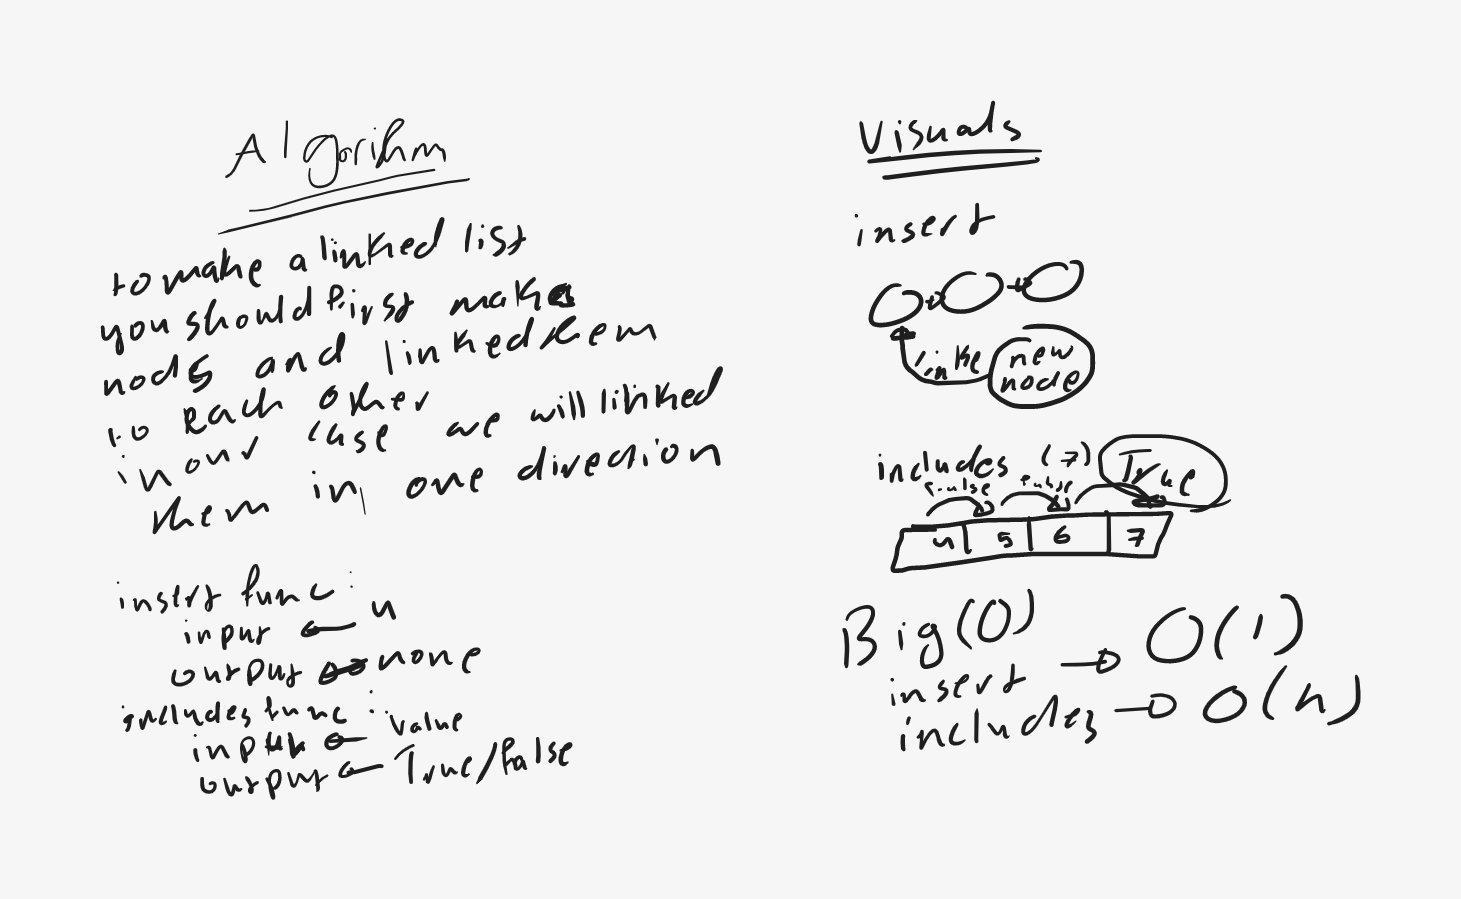 Algorihm
to make a linked list
you should first make
nods and linked them
to each other
in our case we will linked
them in one direction
insert func :
input n
output none
includes func :
input value
output True/False
Visuals
insert
linke
new
node
includes (7) True
false false
4 5 6 7
Big(O)
insert O(1)
includes O(n)